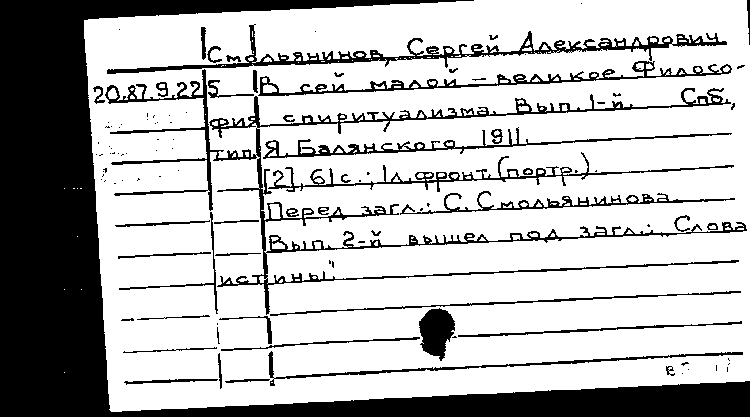 Смольянинов, Сергей Александрович
20.87.9.225 В сей малой – великое. Филосо-
фия спиритуализма. Вып. 1-й. Спб.,
тип. Я. Балянского, 1911.
[2], 61 с.; 1 л. фронт. (портр.)
Перед загл.: С. Смольянинова.
Вып. 2-й вышел под загл.: „Слова
истины"